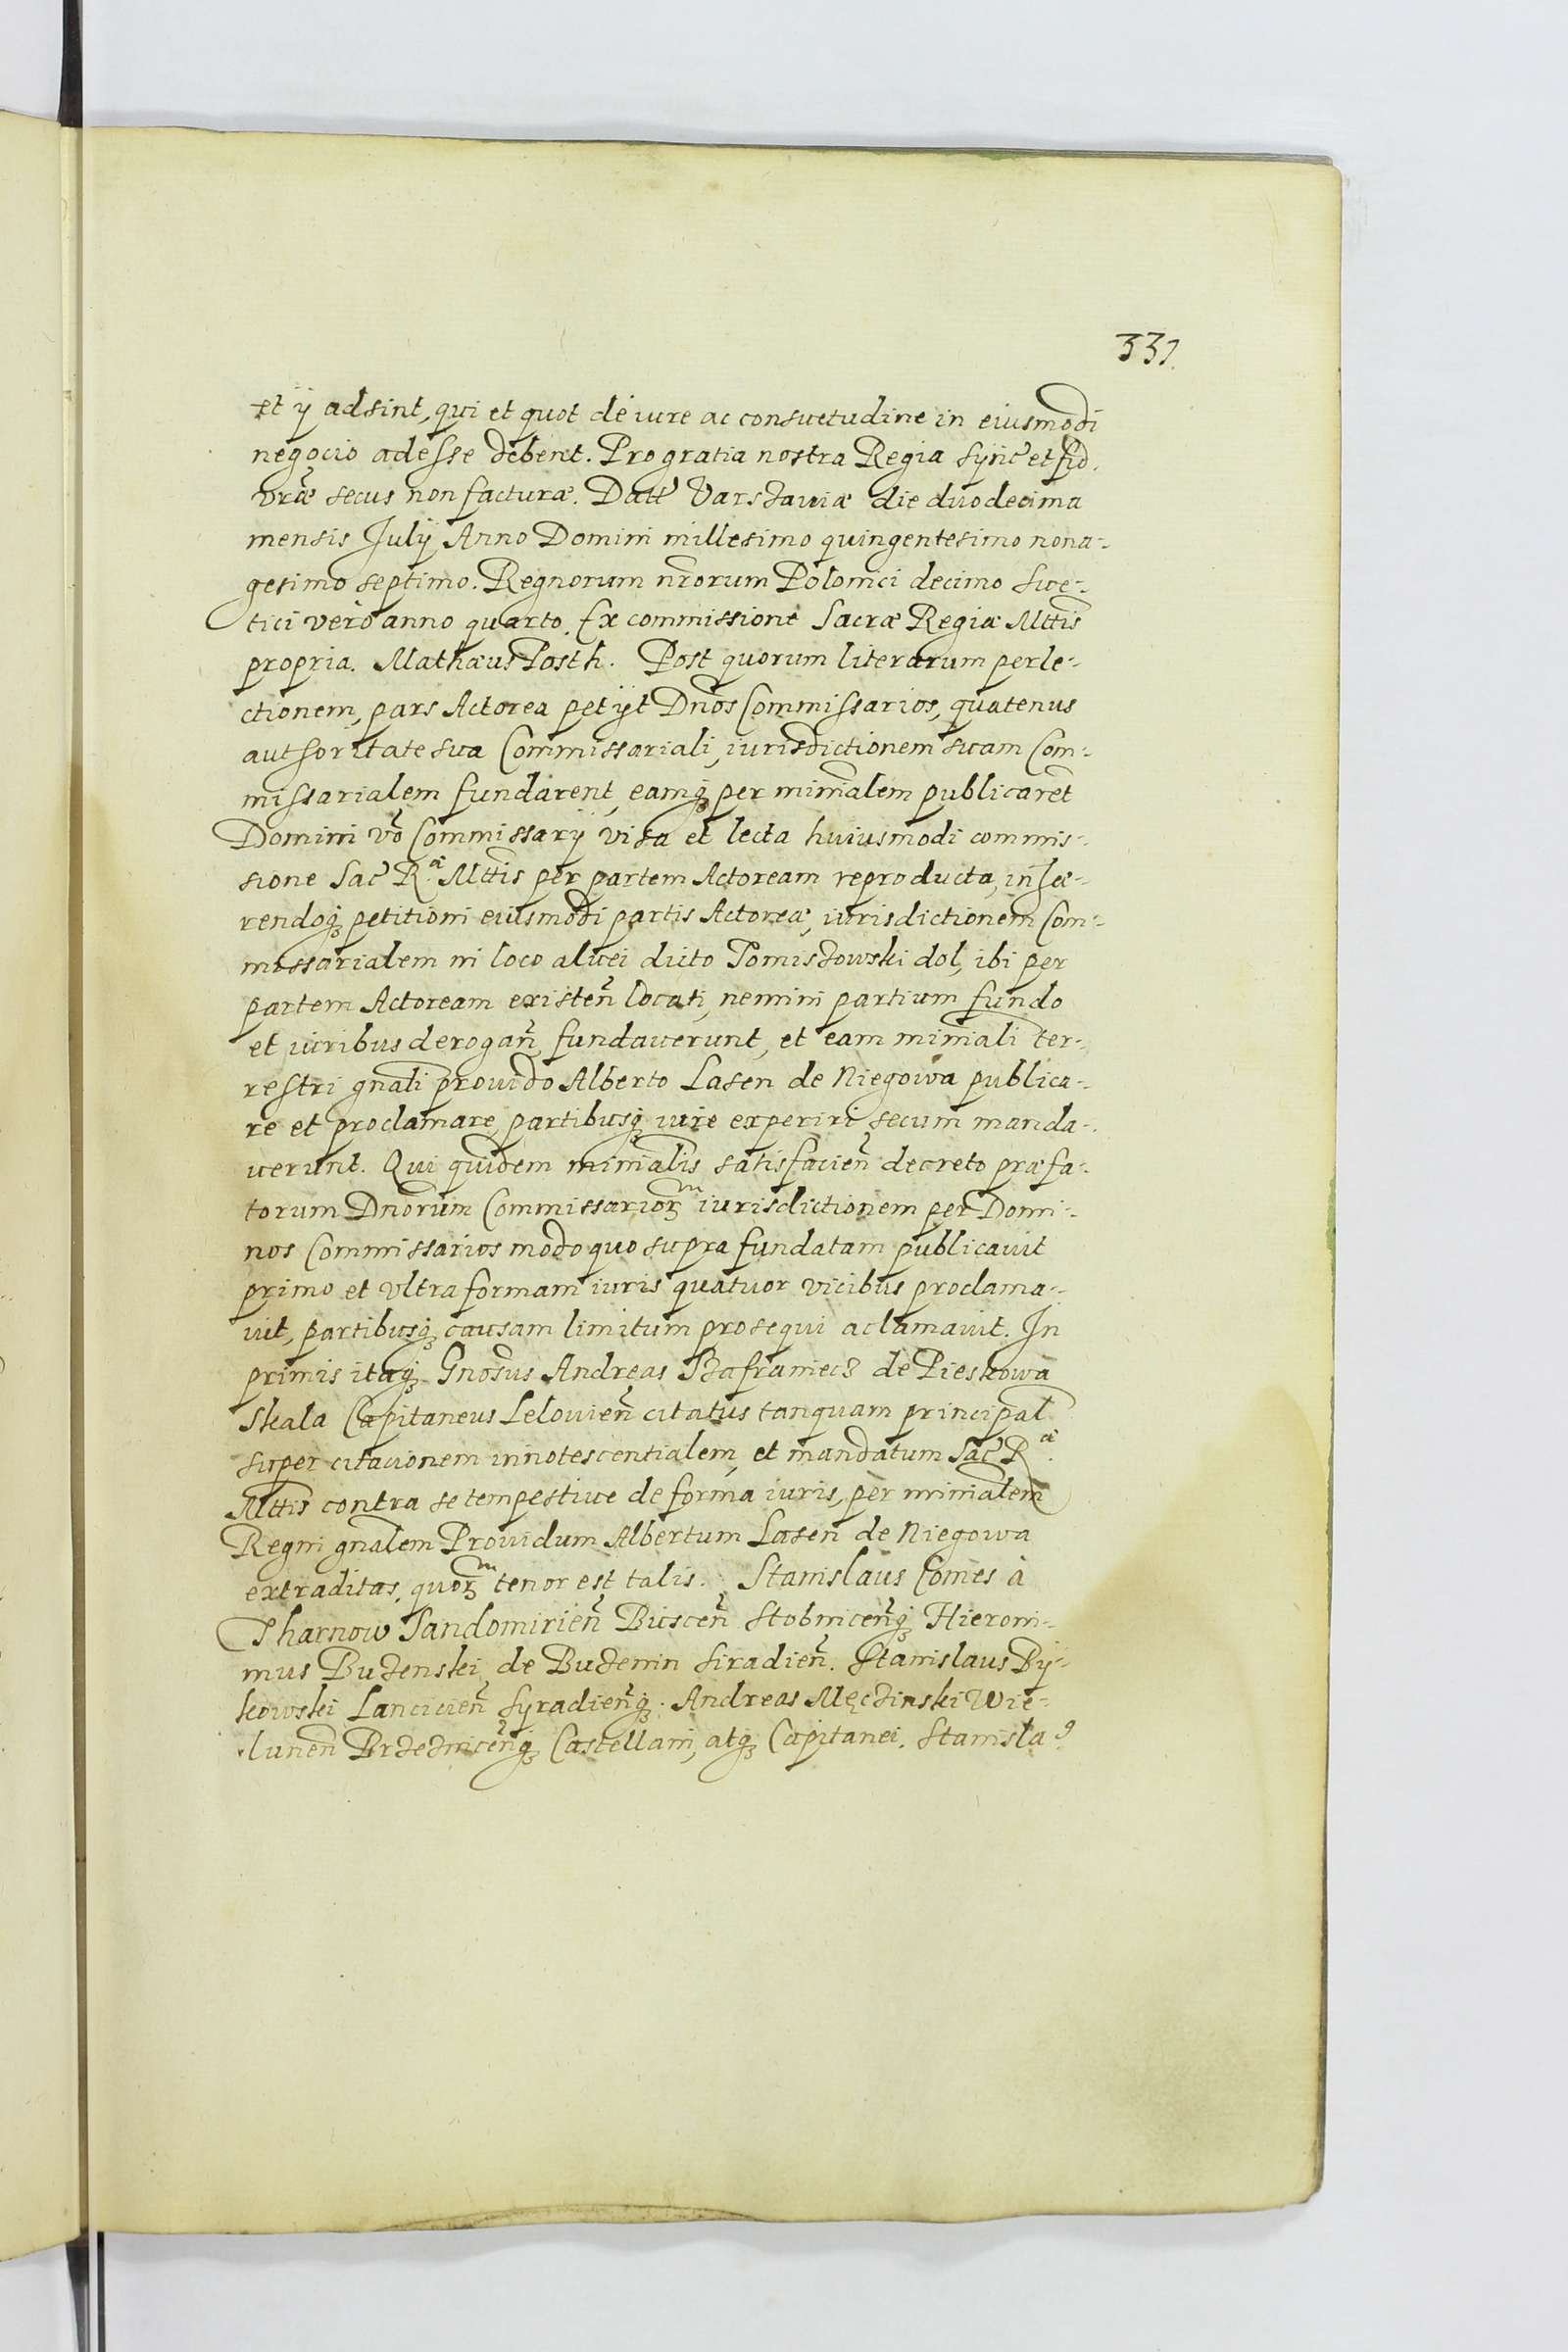 331.
et ÿ adsint, qui et quot de iure ac consuetudine in eiusmodi
negocio adesse debent. Pro gratia nostra Regia synč et fid.
vr̃æ secus non facturæ. Datt Varsзauiæ die duodecima
mensis Julÿ Anno Domini millesimo quingentesimo nona-
gesimo septimo. Regnorum nr̃orum Polonici decimo Sue-
tici vero anno quarto. Ex commissione Sacræ Regiæ Mttis
propria. Mathæus Posth. Post quorum literarum perle-
ctionem, pars Actorea petÿt Dnos Commissarios, quatenus
authoritate sua Commissariali, iurisdictionem suam Com-
missarialem fundarent, eamq₃ per minialem publicarēt
Domini vō Commissarÿ visa et lecta huiusmodi commis-
sione Sac̃ R.æ Mttis per partem Actoream reproducta, inhæ-
rendoq₃ petitioni eiusmodi partis Actoreæ, iurisdictionem Com-
missarialem in loco aluei dicto Tomisзowski dol, ibi per
partem Actoream existeñ locati, nemini partium fundo
et iuribus derogañ fundauerunt, et eam miniali ter-
restri gnali prouido Alberto Lasen de Niegowa publica-
re et proclamare, partibusq₃ iure experiri secum manda-
uerunt. Qui quidem minialis satisfacieñ decreto præfa-
torum Dnorum Commissarior₃m iurisdictionem per Domi-
nos Commissarios modo quo supra fundatam publicauit
primo et vltra formam iuris quatuor vicibus proclama-
uit, partibusq₃ causam limitum prosequi aclamauit. In
primis itaq₃ Gnosus Andreas Szafraniecз de Pieskowa
Skala Capitaneus Leloureñ citatus tanquam principal
super citacionem innotescentialem, et mandatum Sac̃ R.æ
Mttis contra se tempestiue de forma iuris, per minialem
Regni gnalem Prouidum Albertum Lasen de Niegowa
extraditas, quor₃m tenor est talis. Stanislaus Comes à
Tharnow Sandomirieñ Busceñ Stobniceñq₃ Hieroni-
mus Buзenski de Buзenin Siradieñ. Stanislaus Bÿ-
kowski Lancicieñ Syradieñq₃. Andreas Męcзinski Wie-
luneñ Brзeзniceñq₃ Castellani, atq₃ Capitanei. Stanisla9